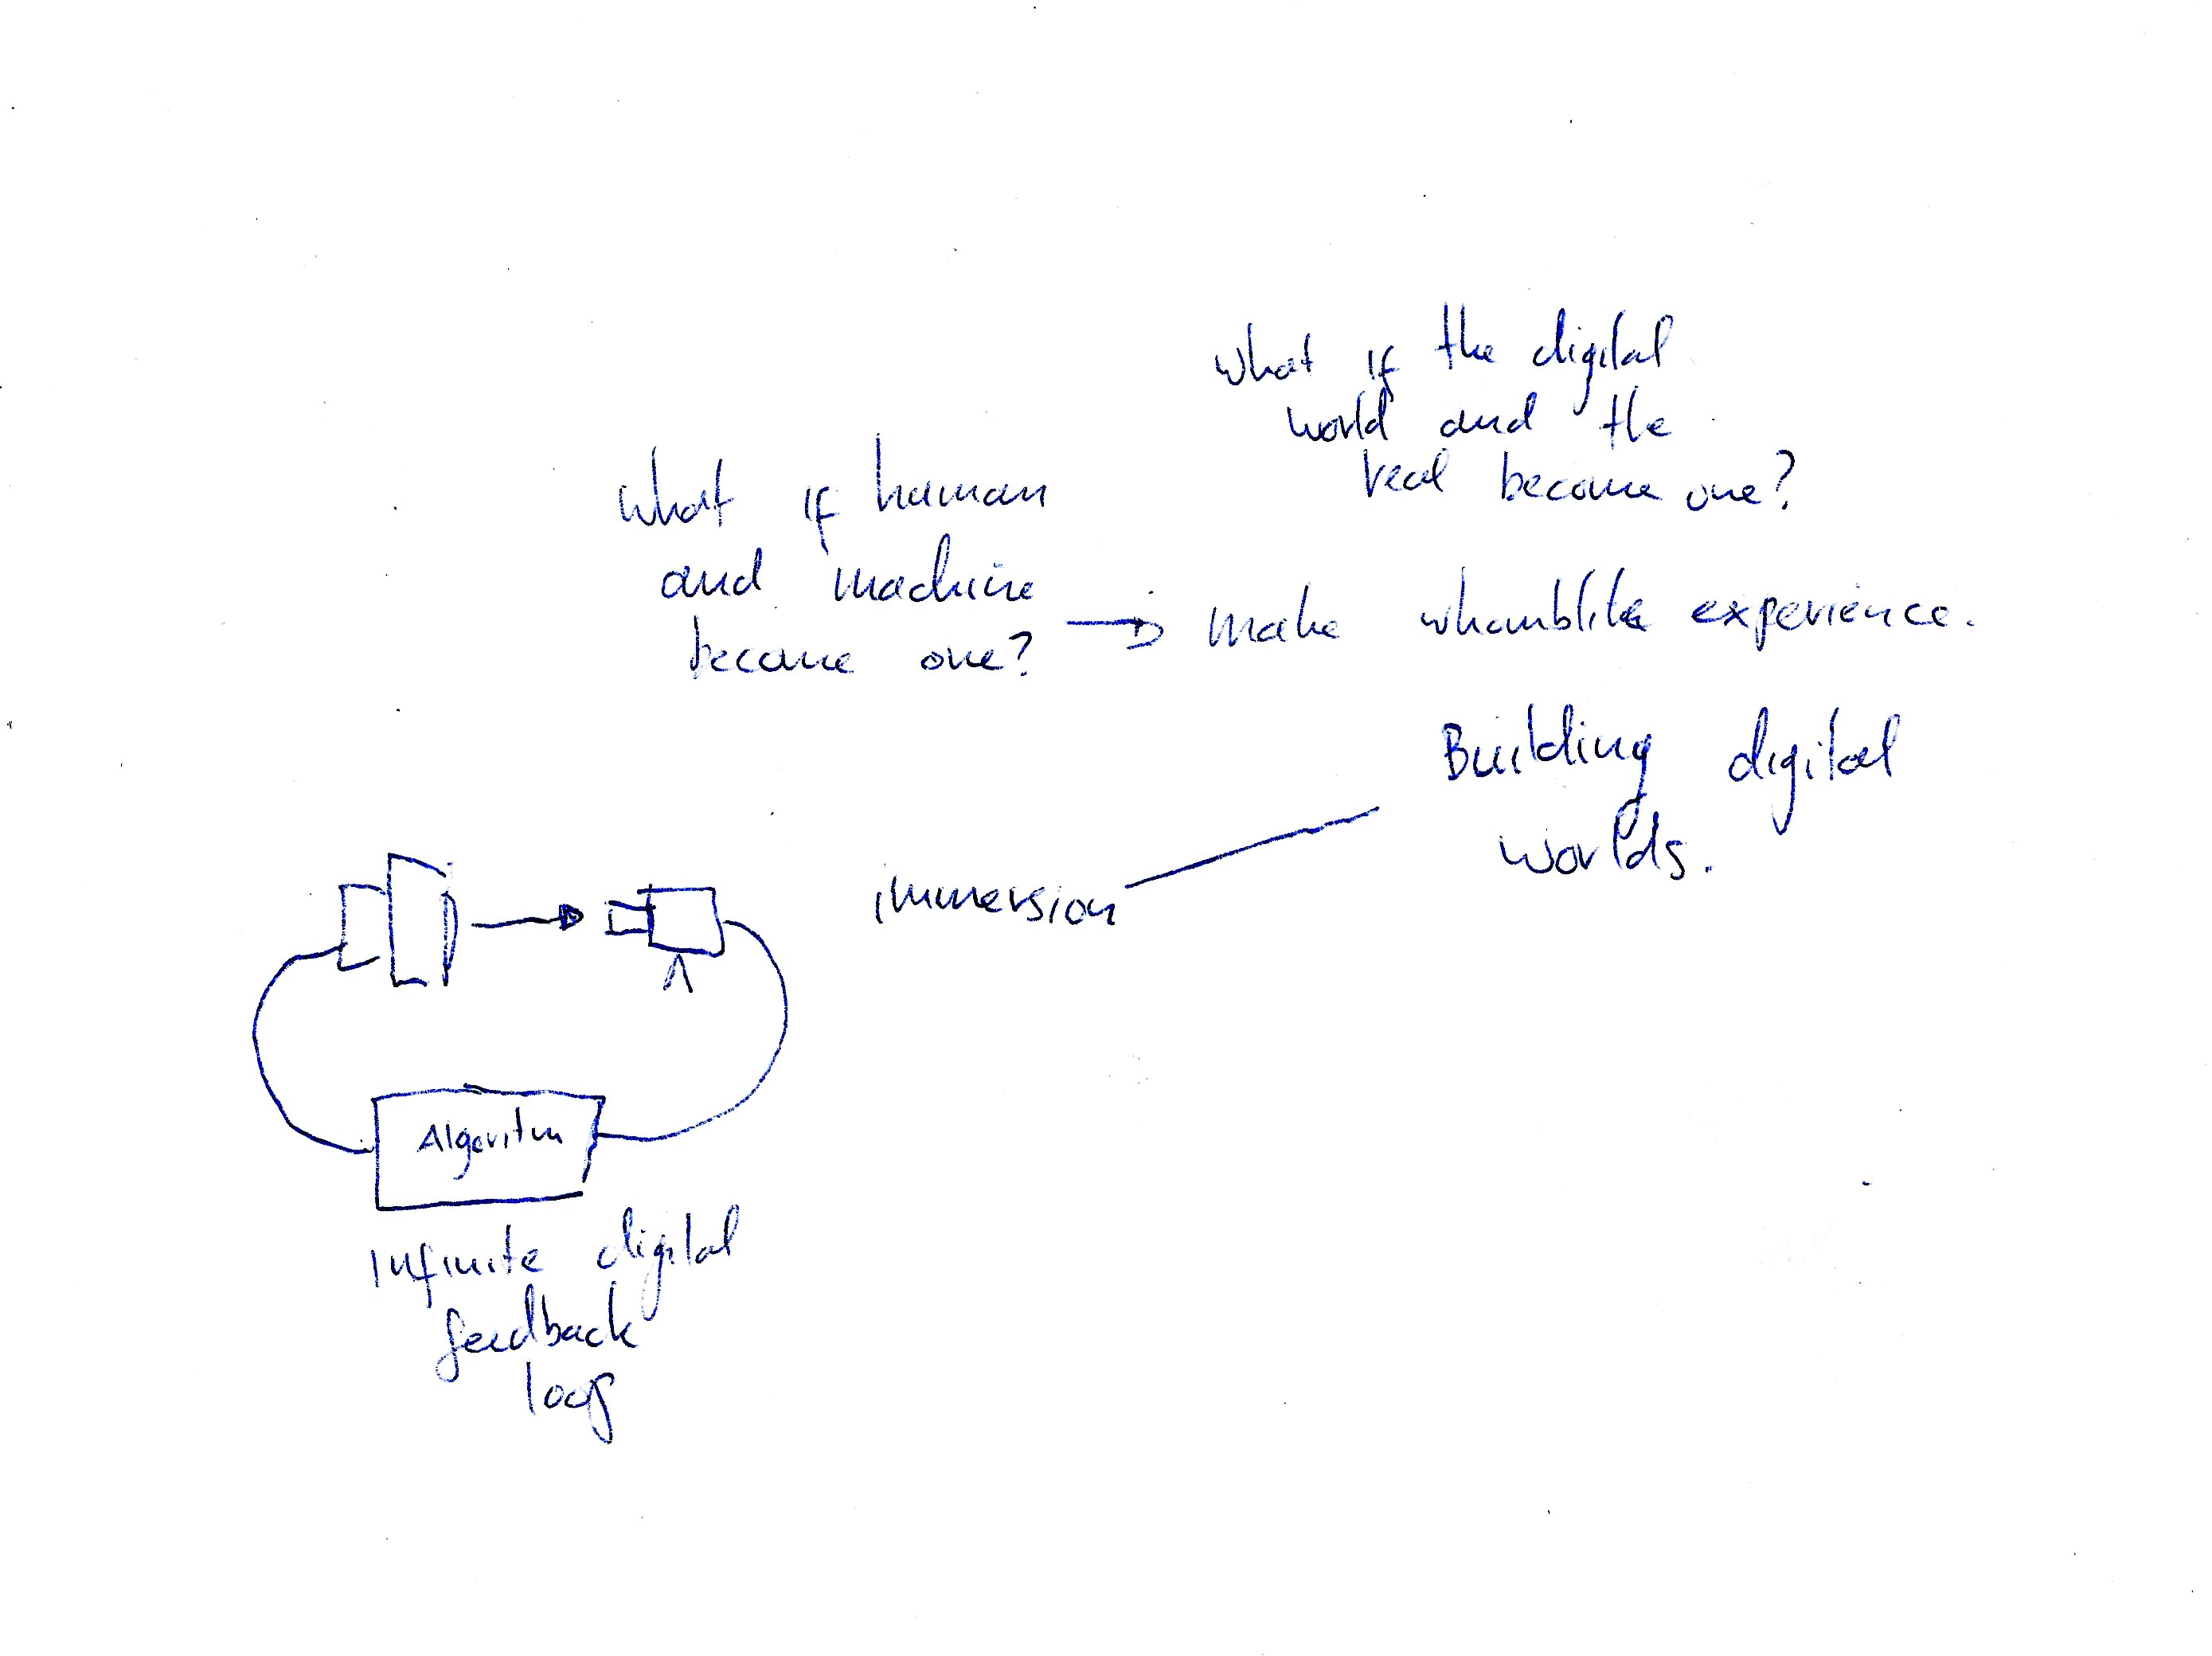 What if the digital
world and the
real become one?
What if human
and machine
become one?
make whomblike experience.
Building digital
worlds.
immersion
Algoritm
Infinite digital
feedback
loop